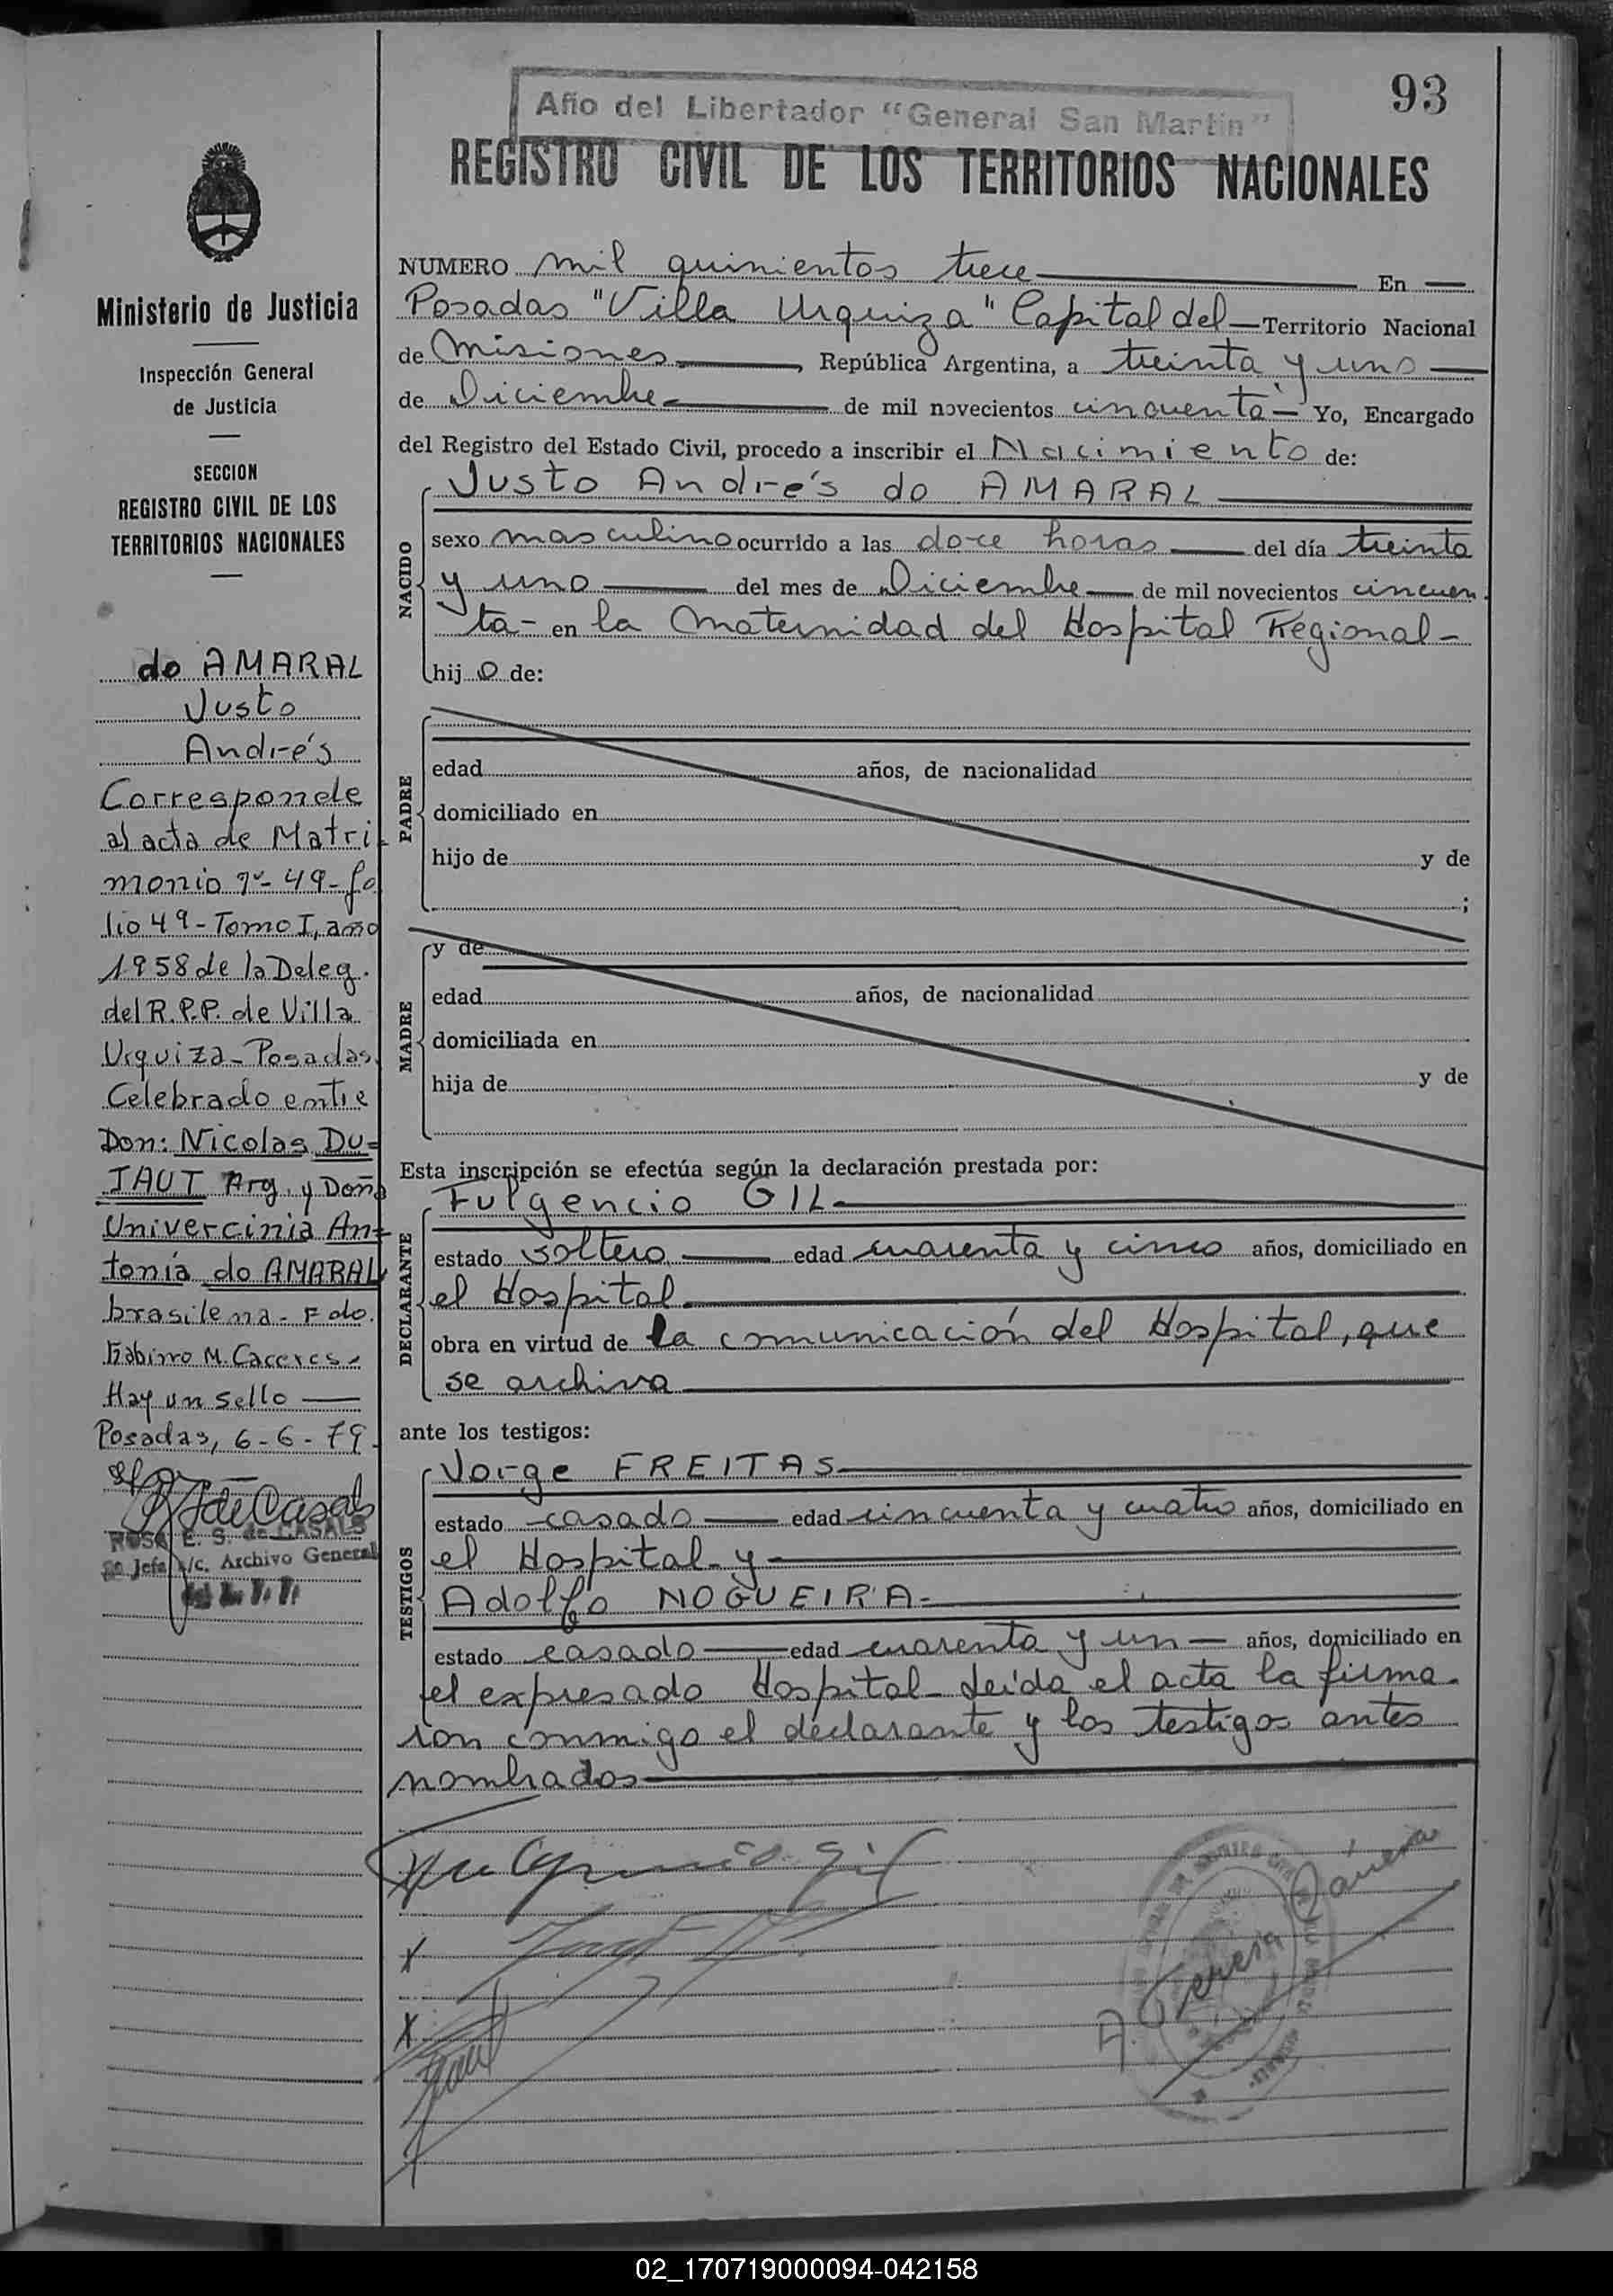 93
Año del Libertador "General San Martín"
REGISTRO CIVIL DE LOS TERRITORIOS NACIONALES
Ministerio de Justicia
Inspección General
de Justicia
SECCION
REGISTRO CIVIL DE LOS
TERRITORIOS NACIONALES
do AMARAL
Justo
Andrés
Corresponde
al acta de Matri-
monio nº 49- fo
lio 49 - Tomo I, año
1958 de la Deleg.
del R.P.P. de Villa
Urquiza - Posadas.
Celebrado entre
Don: Nicolas DU-
TAUT Arg. y Doña
Univercinia An-
tonia do AMARAL
brasilena - Fdo.
M. Caceres -
Hay un sello —
Posadas, 6-6-79.
ROSA E. S. de CASALS
Jefa a/c. Archivo General
NUMERO mil quinientos trece — En —
Posadas "Villa Urquiza" Capital del — Territorio Nacional
de Misiones —, República Argentina, a treinta y uno —
de Diciembre — de mil novecientos cincuenta — Yo, Encargado
del Registro del Estado Civil, procedo a inscribir el Nacimiento de:
NACIDO
Justo Andrés do AMARAL —
sexo masculino ocurrido a las doce horas — del día treinta
y uno — del mes de Diciembre — de mil novecientos cincuen
ta - en la Maternidad del Hospital Regional -
hij o de:
PADRE
edad años, de nacionalidad
domiciliado en
hijo de y de
;
MADRE
y de
edad años, de nacionalidad
domiciliada en
hija de y de
Esta inscripción se efectúa según la declaración prestada por:
DECLARANTE
Fulgencio GIL —
estado soltero — edad cuarenta y cinco años, domiciliado en
el Hospital —
obra en virtud de la comunicación del Hospital, que
se archiva —
ante los testigos:
TESTIGOS
Jorge FREITAS —
estado casado — edad cincuenta y cuatro años, domiciliado en
el Hospital - y —
Adolfo NOGUEIRA —
estado casado — edad cuarenta y un — años, domiciliado en
el expresado Hospital - Leída el acta la firma-
ron conmigo el declarante y los testigos antes
nombrados —
Fulgencio Gil
X
X
02_170719000094-042158